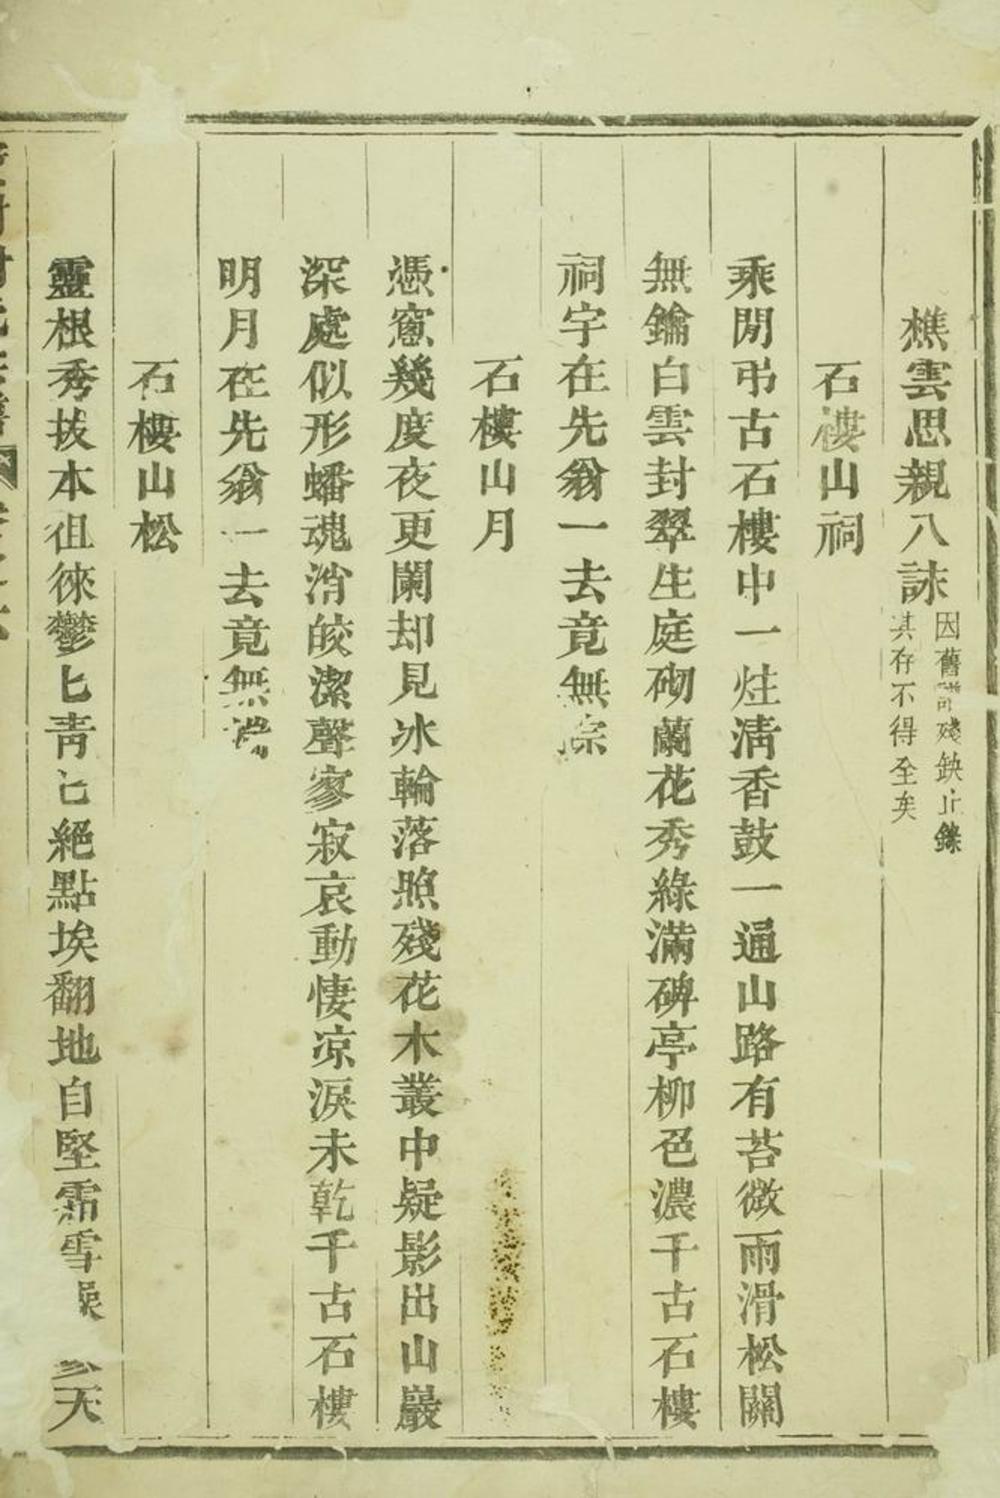 樵雲思親八詠
因舊譜殘缺止錄
其存不得全矣
石樓山祠
乘閒弔古石樓中一炷清香鼓一通山路有苔微雨滑松關
無鑰白雲封翠生庭砌蘭花秀綠滿碑亭柳色濃千古石樓
祠宇在先翁一去竟無踪
石樓山月
憑窻幾度夜更闌却見冰輪落照殘花木叢中疑影出山巖
深處似形蟠魂消皎潔聲寥寂哀動悽凉淚未乾千古石樓
明月在先翁一去竟無
石樓山松
靈根秀拔本徂徠鬱匕靑匕絕點埃翻地自堅霜雪操天